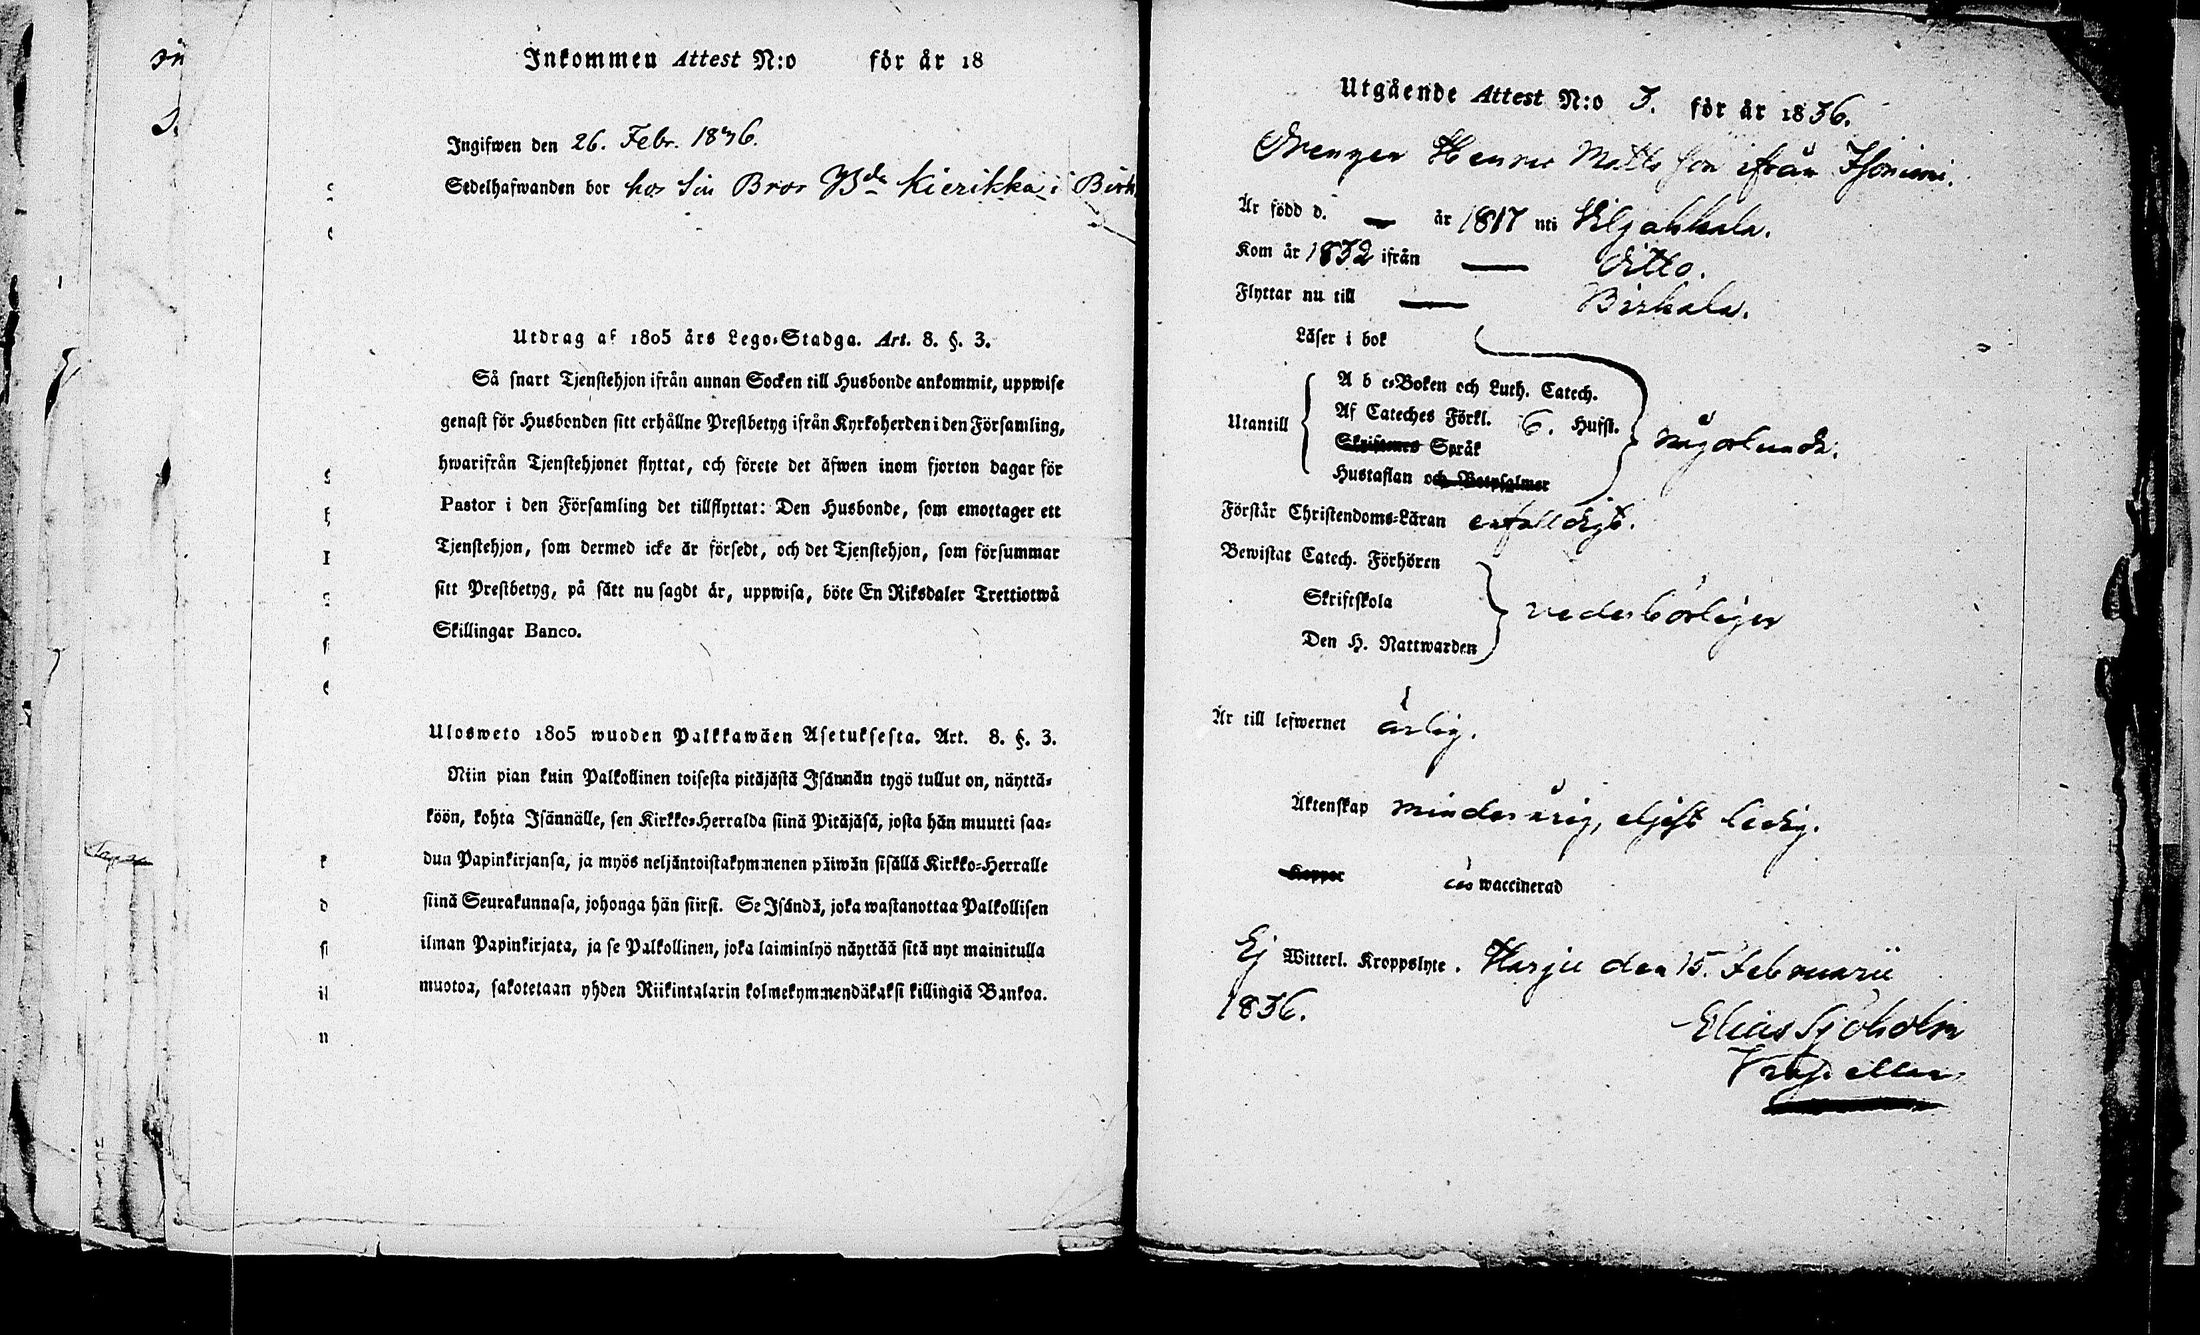 Inkommen Attest N:o för år 18
Ingifwen den 26. Febr. 1836.
Sedelhafwanden bor hos Sin Bror Bde Kierikka i Birk
Utdrag af 1805 års Lego-Stadga. Art. 8. §. 3.
Så snart Tjenstehjon ifrån annan Socken till Husbonde ankommit, uppwise
genast för Husbonden sitt erhållne Prestbetyg ifrån Kyrkoherden i den Församling,
hwarifrån Tjenstehjonet flyttat, och förete det äfwen inom fjorton dagar för
Pastor i den Församling det tillflyttat: Den Husbonde, som emottager ett
Tjenstehjon, som dermed icke är försedt, och det Tjenstehjon, som försummar
sitt Prestbetyg, på sätt nu sagdt är, uppwisa, böte En Riksdaler Trettiotwå
Skillingar Banco.
Ulosweto 1805 wuoden Palkkawäen Asetuksesta. Art. 8. §. 3.
Niin pian kuin Palkollinen toisesta pitäjästä Isännän tygö tullut on, näyttä-
köön, kohta Isännälle, sen Kirkko-Herralda siinä Pitäjäsä, josta hän muutti saa-
dun Papinkirjansa, ja myös neljäntoistakymmenen päiwän sisällä Kirkko-Herralle
siinä Seurakunnasa, johonga hän siirsi. Se Isändä, joka wastanottaa Palkollisen
ilman Papinkirjata, ja se Palkollinen, joka laiminlyö näyttää sitä nyt mainitulla
muotoa, sakotetaan yhden Riikintalarin kolmekymmendäkaksi killingiä Bankoa.
Utgående Attest N:o 3. för år 1836.
Drengen Henric Matts son ifrån
Är född d. — år 1817 uti Viljakkala.
Kom år 1832 ifrån — ditto.
Flyttar nu till — Birkala.
Läser i bok
Utantill
A b c-Boken och Luth. Catech.
Af Cateches Förkl. 6. Hufst.
Skriftenes Språk
någorlunda.
Hustaflan och Botpsalmer
Förstår Christendoms-Läran enfalldigt.
Bewistat Catech. Förhören
Skriftskola
vederbörligen
Den H. Nattwarden
Är till lefwernet ärlig.
Äktenskap minderårig, eljest ledig.
Koppor är waccinerad
Ej Witterl. Kroppslyte. Harju den 15. Februarii
1836.
Elias Sjöholm
Kapellan